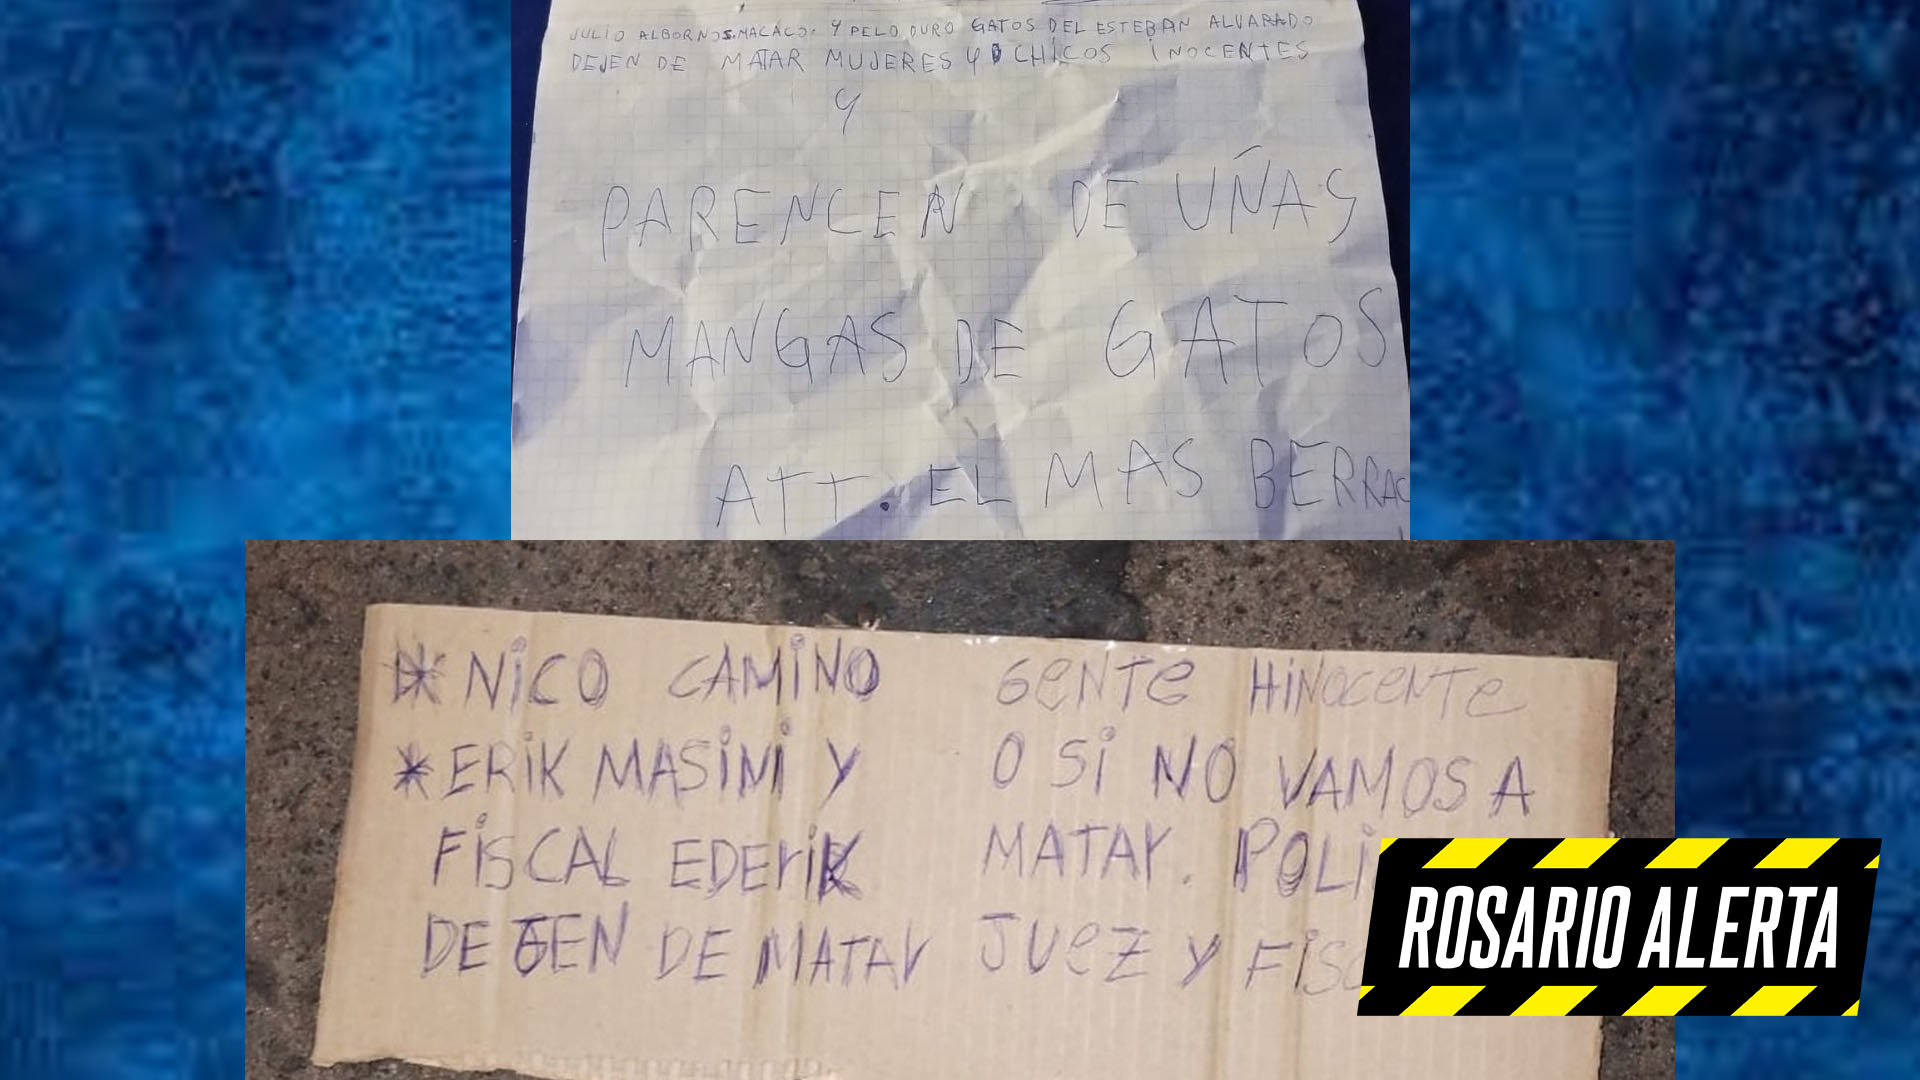 JULIO ALBORNOS.MACACO. Y PELO DURO GATOS DEL ESTEBAN ALVARADO
DEJEN DE MATAR MUJERES Y CHICOS INOCENTES
Y
PARENCEN DE UÑAS
MANGAS DE GATOS
ATT. EL MAS BERRAC
* NiCO CAMiNO
* ERiK MASiNi Y
FiSCAL EDEriK
DE GEN DE MATAr
GeNTe HiNOCeNTe
O Si NO VAMOS A
MATAr. POLi
JUeZ Y FiSC
ROSARIO ALERTA